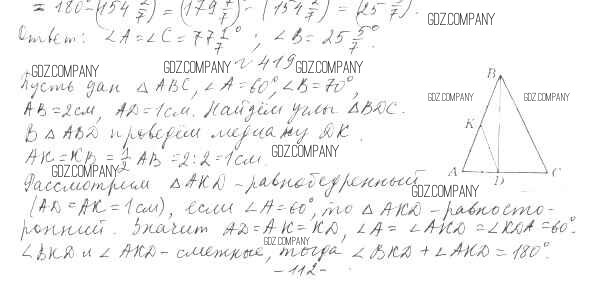 = 180° - (154 2/7)° = (179 7/7)° - (154 2/7)° = (25 5/7)°.
GDZ.COMPANY
Ответ: ∠A = ∠C = 77 1/7°; ∠B = 25 5/7°.
№419
GDZ.COMPANY GDZ.COMPANY GDZ.COMPANY
Пусть дан △ABC, ∠A = 60°, ∠B = 70°,
AB = 2см, AD = 1см. Найдём углы △BDC.
В △ABD проведём медиану DK.
AK = KB = 1/2 AB = 2:2 = 1см.
GDZ.COMPANY
GDZ.COMPANY
Рассмотрим △AKD - равнобедренный
(AD = AK = 1см), если ∠A = 60°, то △AKD - равносто-
ронний. Значит AD = AK = KD, ∠A = ∠AKD = ∠KDA = 60°.
GDZ.COMPANY
∠BKD и ∠AKD - смежные, тогда ∠BKD + ∠AKD = 180°.
-112-
B
GDZ.COMPANY GDZ.COMPANY
K
A D C
GDZ.COMPANY